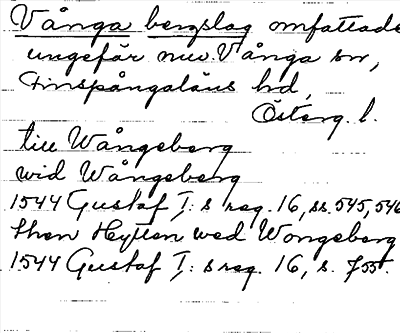 Vånga bergslag omfattade
ungefär nuv. Vånga sn,
Finspångaläns hd,
Österg. l.
till Wångeberg
wid Wångeberg
1544 Gustaf I:s reg. 16, ss. 545, 546
then Hytten wed Wongeberg
1544 Gustaf I:s reg. 16, s. 755.